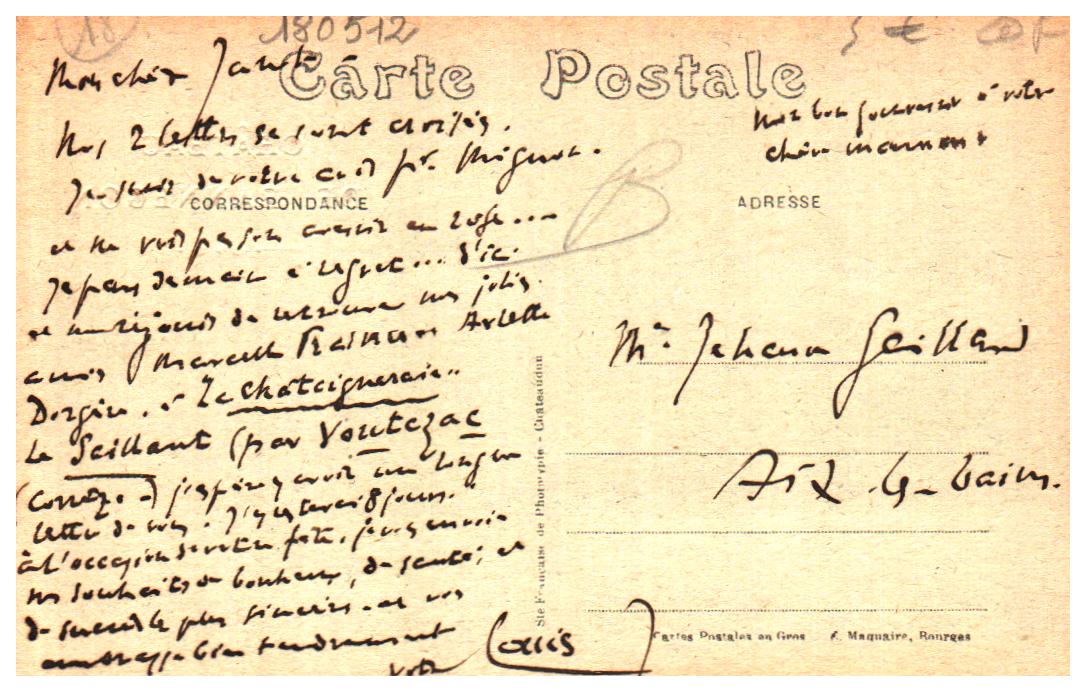 180512
Carte Postale
Mon cher
Nos 2 lettres se sont croisées.
Je suis de votre avis pr. Mignon.
CORRESPONDANCE
et ne vois pas son avenir en rose...
Je pars demain à regret... d'ici
et me réjouis de retrouver mes jolis
amis Marcelle Arlette
Dorgère. à La Châtaigneraie..
Le Saillant (par Voutezac
(Corrèze.) j'espère y avoir une longue
lettre de vous. J'y resterai 8 jours.
à l'occasion de votre fête, je vous envoie
mes souhaits de bonheur, de santé, et
de les plus sincères. et vous
embrasse bien tendrement
votre Louis
Mon bon souvenir à votre
chère maman
ADRESSE
Mr Jehan Gaillard
Aix-les-bains.
Ste Française de Phototypie - Châteaudun
Cartes Postales en Gros E. Maquaire, Bourges